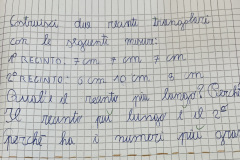 Costruisci due recinti triangolari
con le seguenti misure:
1° RECINTO: 7 cm 7 cm 7 cm
2° RECINTO: 6 cm 10 cm 8 cm
Qual'è il recinto più lungo? Perché
Il recinto più lungo è il 2°
perché ha i numeri più gran